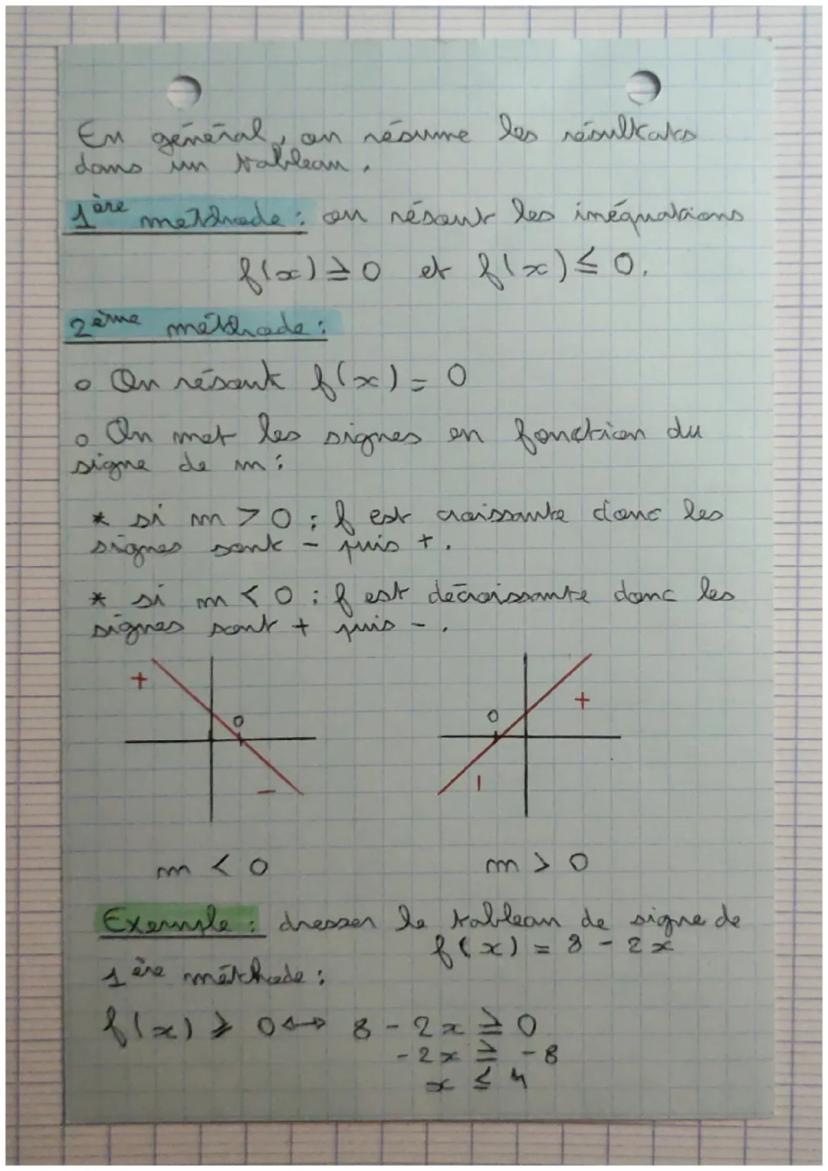 En général, on résume les résultats
dans un tableau.
1ère méthode : on résout les inéquations
f(x) ≥ 0 et f(x) ≤ 0.
2ème méthode :
o On résout f(x) = 0
o On met les signes en fonction du
signe de m :
* si m > 0 : f est croissante donc les
signes sont - puis +.
* si m < 0 : f est décroissante donc les
signes sont + puis -.
+ 0 -
0 + -
m < 0 m > 0
Exemple : dresser le tableau de signe de
f(x) = 8 - 2x
1ère méthode :
f(x) ≥ 0 ⟷ 8 - 2x ≥ 0
-2x ≥ -8
x ≤ 4